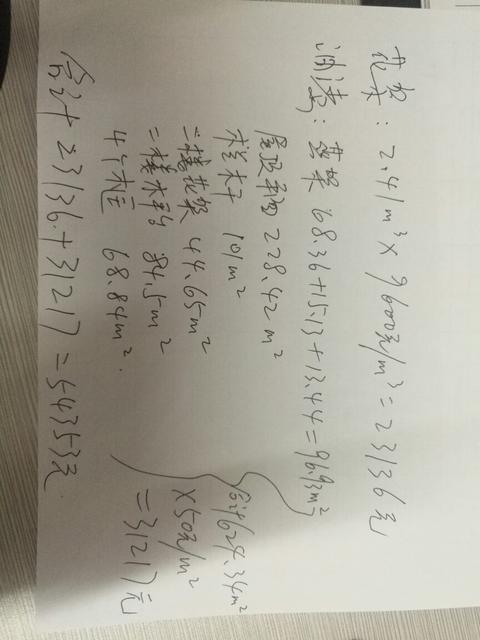 花架: 2.41m³×9600元/m³=23136元
油漆: 花架 68.36+15.13+13.44=96.93m²
228.42m²
柱子 101m²
二楼花架 44.65m²
二楼木 84.5m²
4个框 68.84m².
合计624.34m²
×50元/m²
=31217元
合计 23136+31217=54353元.